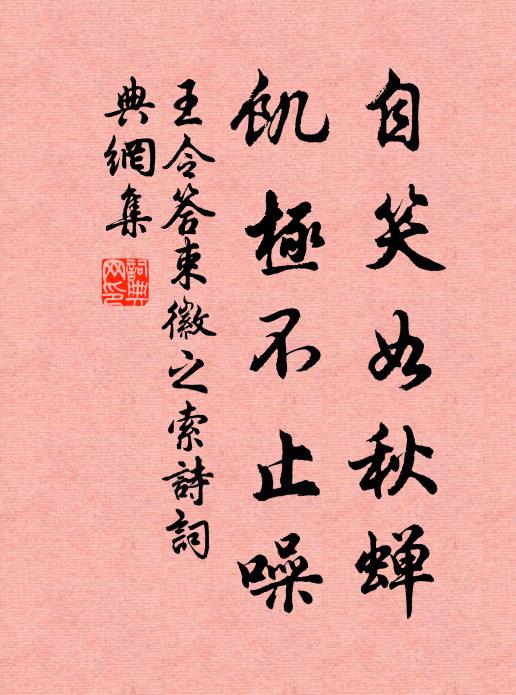 自笑如秋蝉
飢極不止噪
王令答束徽之索詩詞
典網集
詞典
网印